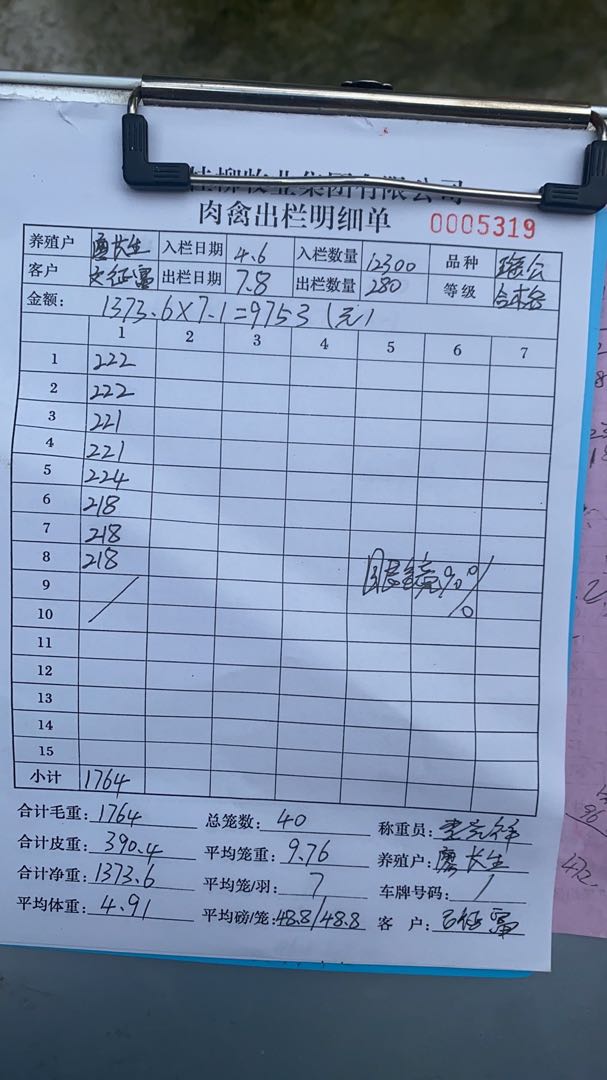 桂柳牧业集团有限公司
肉禽出栏明细单 0005319
养殖户 廖长生 入栏日期 4.6 入栏数量 12300 品种 瑶公
客户 出栏日期 7.8 出栏数量 280 等级 合格
金额: 1373.6×7.1=9753(元)
1 2 3 4 5 6 7
1 222
2 222
3 221
4 221
5 224
6 218
7 218
8 218
9
10
11
12
13
14
15
小计 1764
合计毛重: 1764 总笼数: 40 称重员:
合计皮重: 390.4 平均笼重: 9.76 养殖户: 廖长生
合计净重: 1373.6 平均笼/羽: 7 车牌号码: 1
平均体重: 4.91 平均磅/笼: 48.8/48.8 客 户: